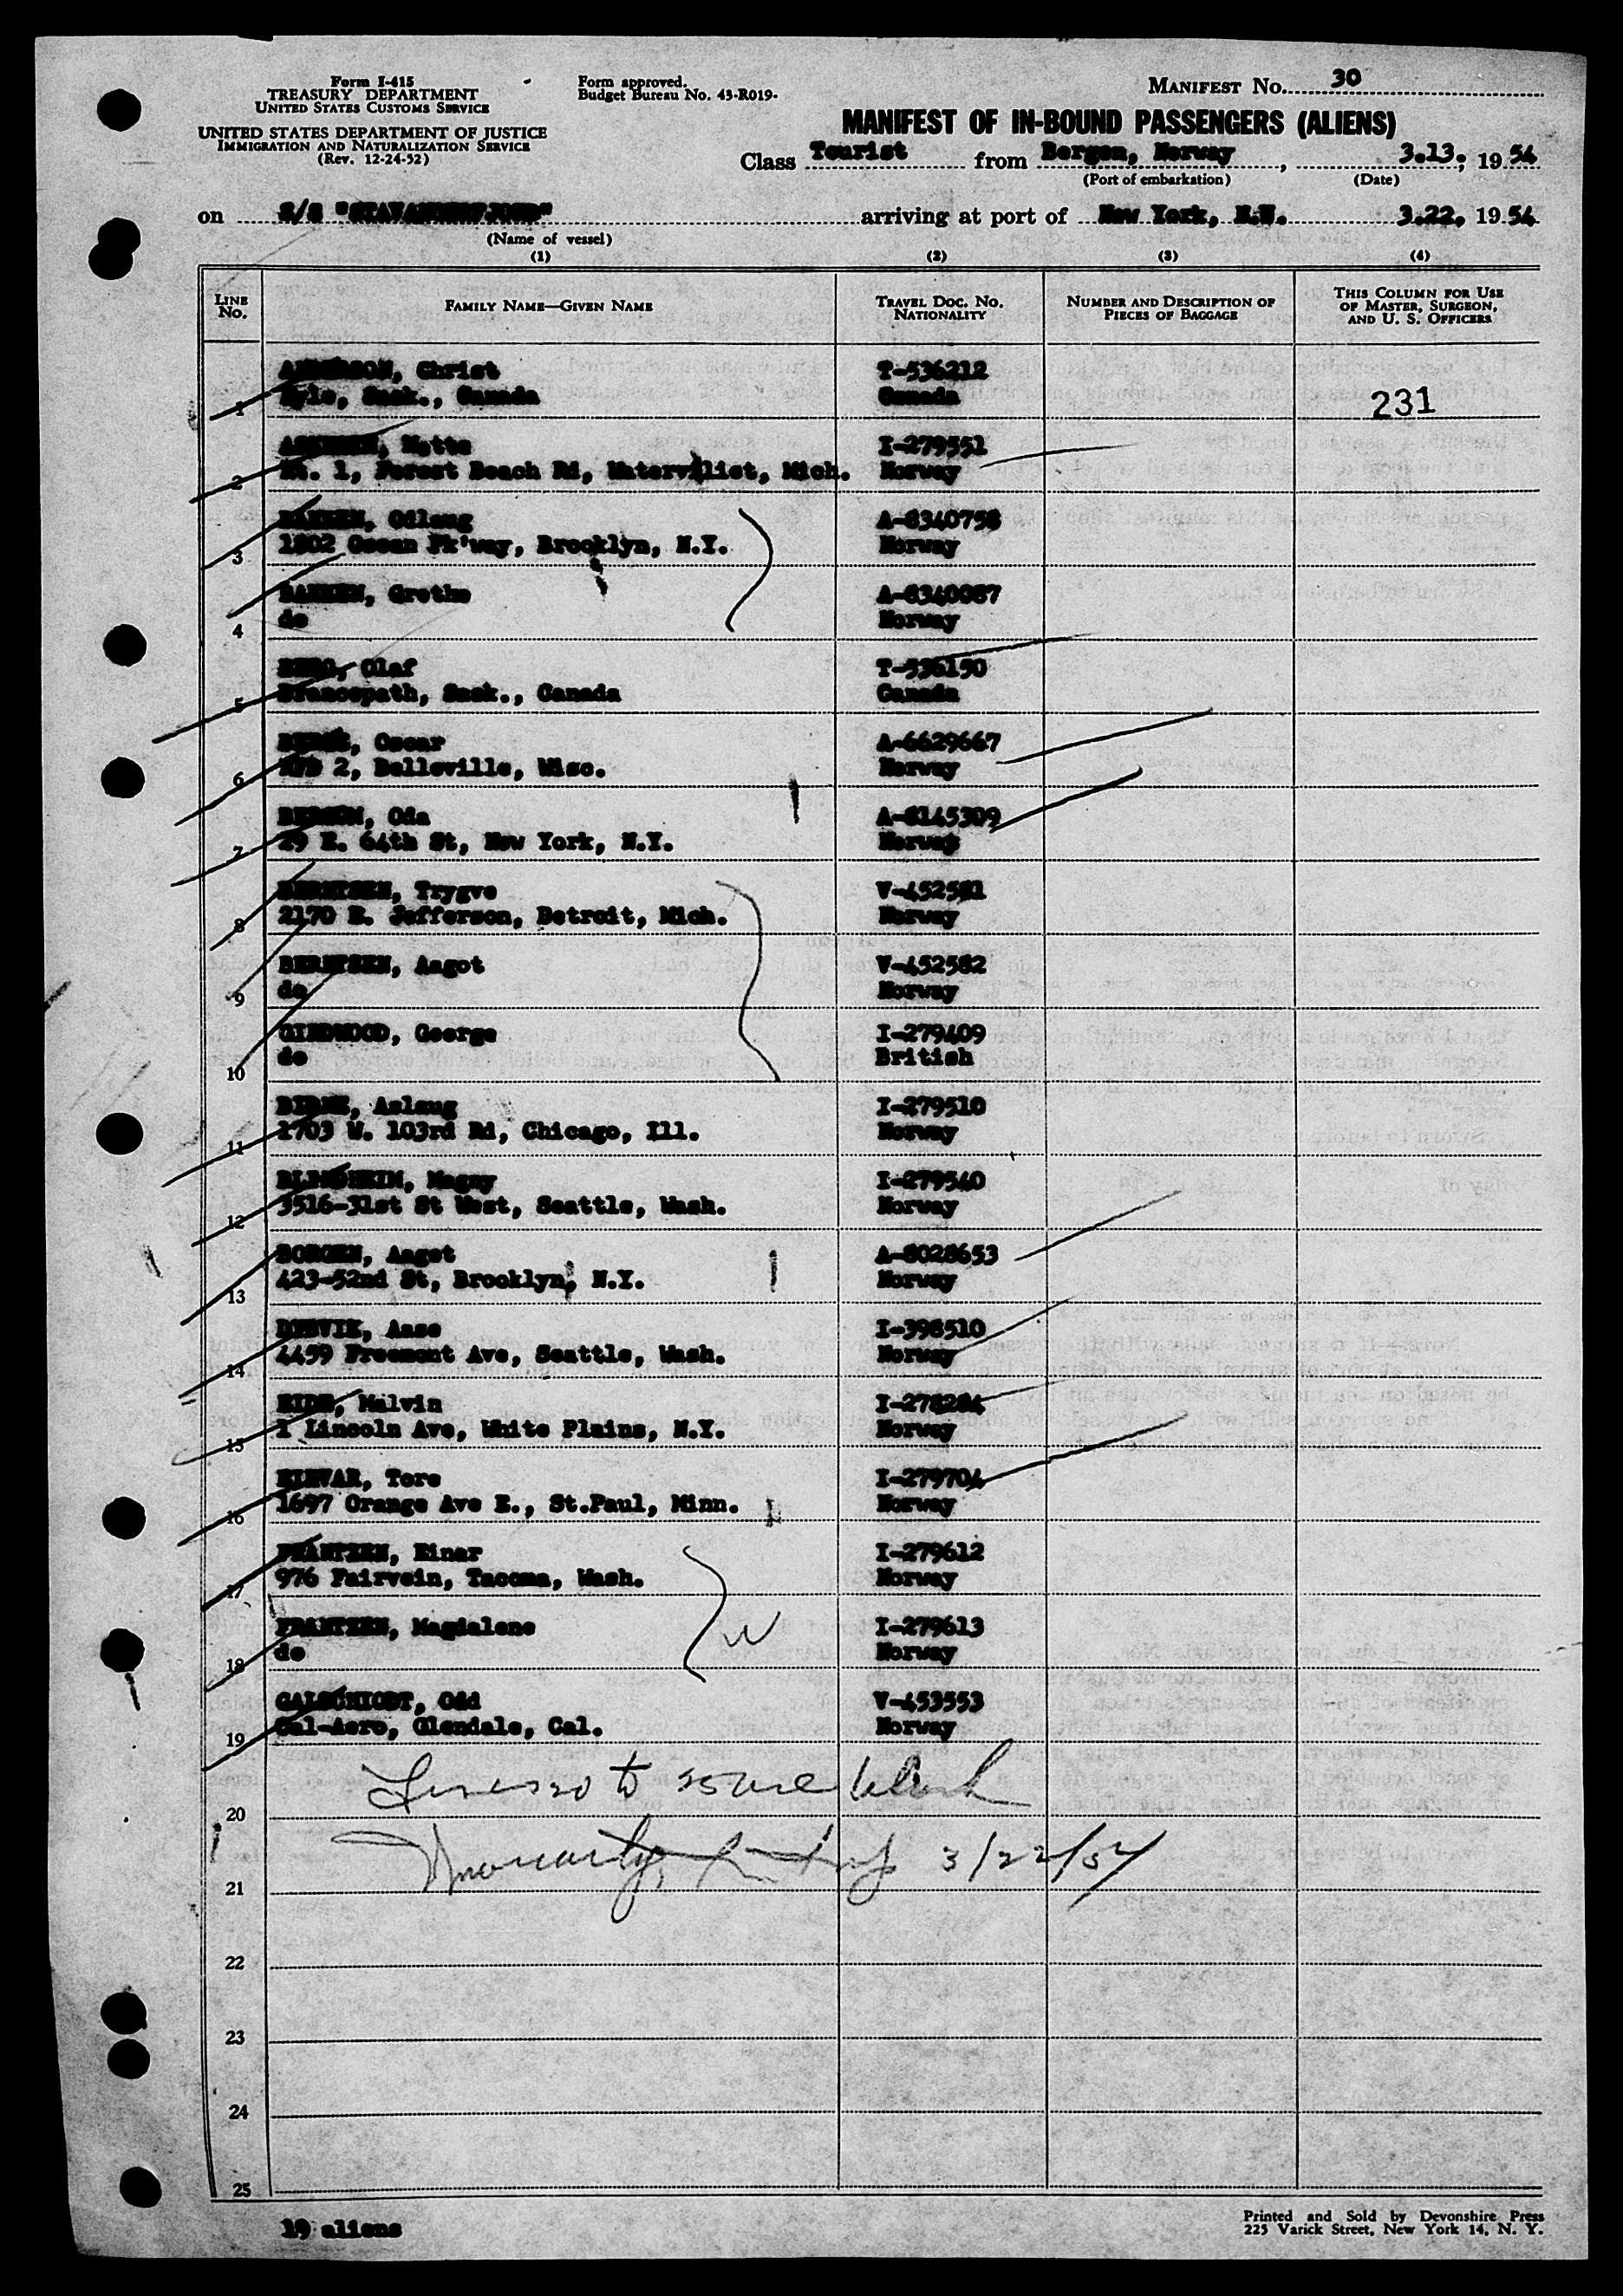 Form I-415
TREASURY DEPARTMENT
UNITED STATES CUSTOMS SERVICE
UNITED STATES DEPARTMENT OF JUSTICE
IMMIGRATION AND NATURALIZATION SERVICE
(Rev. 12-24-52)
Form approved.
Budget Bureau No. 43-R019-
MANIFEST No. 30
MANIFEST OF IN-BOUND PASSENGERS (ALIENS)
Class Tourist from Bergen, Norway, 3.13, 1954
(Port of embarkation) (Date)
on S/S "STAVANGERFJORD" arriving at port of New York, N.Y. 3.22, 1954
(Name of vessel)
(1) (2) (3) (4)
LINE No. FAMILY NAME—GIVEN NAME TRAVEL DOC. No. NATIONALITY NUMBER AND DESCRIPTION OF PIECES OF BAGGAGE THIS COLUMN FOR USE OF MASTER, SURGEON, AND U. S. OFFICERS
ANDERSON, Christ T-536212
1 Kyle, Sask., Canada Canada 231
Mette I-279551
2 Rt. 1, Forest Beach Rd, Watervliet, Mich. Norway
BAKKEN, Odlaug A-8340758
3 1802 Ocean Pk'way, Brooklyn, N.Y. Norway
BAKKEN, Grethe A-8340087
4 do Norway
BERG, Olaf T-536150
5 Canada Sask., Canada
6 Oscar A-6629667
RFD 2, Belleville, Wisc. Norway
Oda A-8145309
7 29 E. 64th St, New York, N.Y. Norway
BERNTSEN, Trygve V-452581
8 2170 E. Jefferson, Detroit, Mich. Norway
BERNTSEN, Aagot V-452582
9 do Norway
GIRDWOOD, George I-279409
10 do British
Aslaug I-279510
11 1703 W. 103rd Rd, Chicago, Ill. Norway
BLINDHEIM, Magny I-279540
12 3516-31st St West, Seattle, Wash. Norway
BORGEN, Aagot A-8028653
13 423-52nd St, Brooklyn, N.Y. Norway
Aase I-398510
14 4459 Freemont Ave, Seattle, Wash. Norway
EIDE, Malvin I-278284
15 1 Lincoln Ave, White Plains, N.Y. Norway
Tore I-279704
16 1697 Orange Ave E., St.Paul, Minn. Norway
FRANTZEN, Einar I-279612
17 976 Fairvein, Tacoma, Wash. Norway
FRANTZEN, Magdalene I-279613
18 do Norway
GALSCHIODT, Odd V-453553
19 Cal-Aero, Glendale, Cal. Norway
Lines 20 to 25 are blank
20
3/22/54
21
22
23
24
25
19 aliens
Printed and Sold by Devonshire Press
225 Varick Street, New York 14, N. Y.